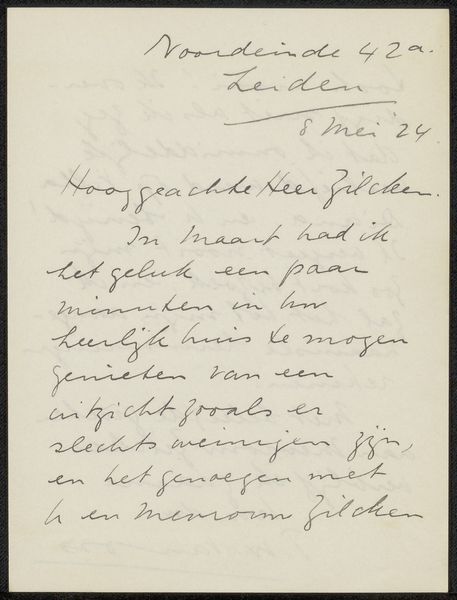 Noordeinde 42a.
Leiden
8 Mei '24
Hooggeachte Heer Zilcken.
In Maart had ik
het geluk een paar
minuten in Uw
heerlijk huis te mogen
genieten van een
uitzicht zooals er
slechts weinigen zijn,
en het genoegen met
U en Mevrouw Zilcken